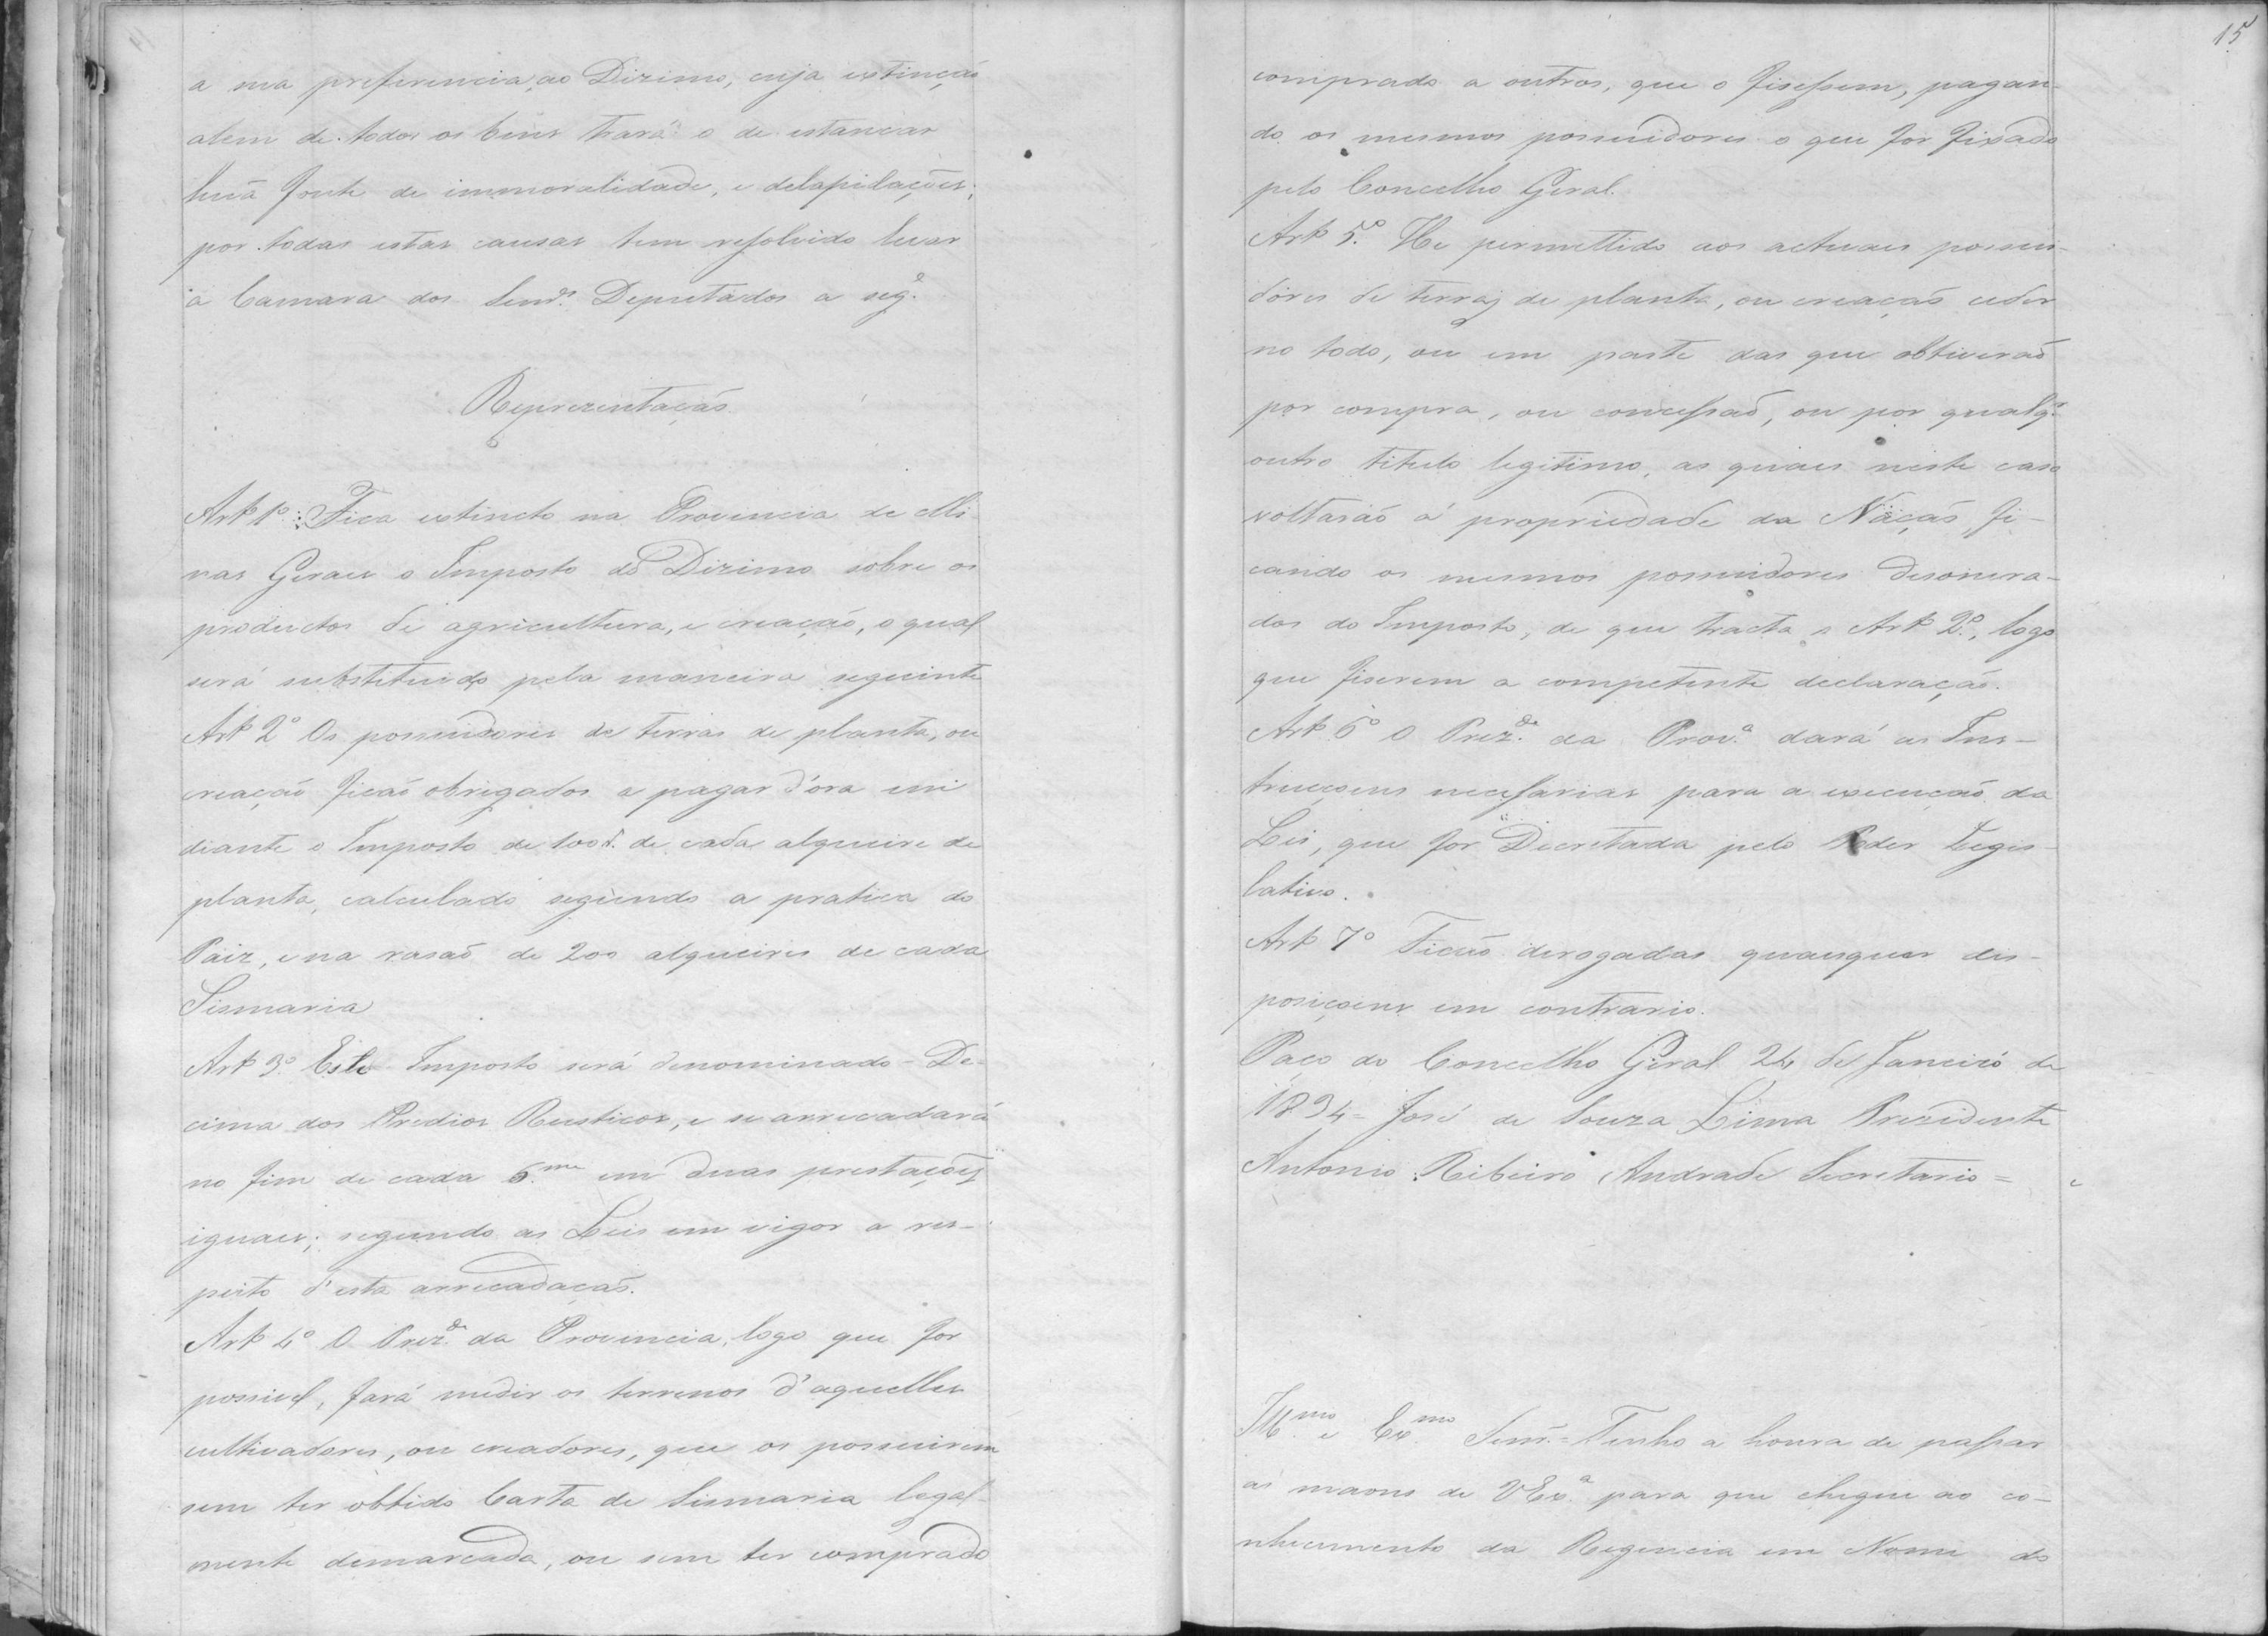 a sua preferencia, ao Dizimo, cuja extinçaõ
alem de todos os bens trará o de estancar
huã fonte de immoralidade, e delapilações;
por todas estas causas tem resolvido levar
á Camara dos Senrs. Deputados a sega.
Reprezentaçaõ
Arto 1º Fica extincto na Provincia de Mi-
nas Geraes o Imposto do Dizimo sobre os
productos de agricultura, e creaçaõ, o qual
será substituido pela maneira seguinte
Arto 2º Os possuidores de terras de planta, ou
creaçaõ ficaõ obrigados a pagar d'ora em
diante o Imposto de 100 r. de cada alqueire de
planta, calculado segundo a pratica do
Paiz, e na rasaõ de 200 alqueires de cada
Sismaria
Arto 3º Este Imposto será denominado - De-
cima dos Predios Rusticos, e se arrecadará
no fim de cada 6.me em duas prestações
iguaes; segundo as Leis em vigor a res-
peito d'esta arrecadaçaõ.
Arto 4º O Prezde. da Provincia, logo que for
possivel, fará medir os terrenos d'aquelles
cultivadores, ou creadores, que os possuirem
sem ter obtido Carta de Sismaria legal-
mente demarcada, ou sem ter comprado
15
comprado a outros, que o fisessem, pagan-
do os mesmos possuidores o que for fixado
pelo Concelho Geral.
Arto 5º He permettido aos actuaes possui-
dores de terras de planta, ou creaçaõ ceder
no todo, ou em parte das que obtiveraõ
por compra, ou concessaõ, ou por qualqr.
outro titulo legitimo, as quaes neste caso
voltaraõ á propriedade da Naçaõ, fi-
cando os mesmos possuidores desonera-
dos do Imposto, de que tracta o Arto 2º, logo
que fiserem a competente declaraçaõ.
Arto 6º O Prezde. da Prova. dará as Ins-
trucçoens necessarias para a execuçaõ da
Lei, que for Decretada pelo Poder Legis-
lativo.
Arto 7º Ficaõ derogadas quaesquer dis-
posiçoens em contrario.
Paço do Concelho Geral 24 de Janeiro de
1834 = José de Souza Lima Prezidente
Antonio Ribeiro Andrade Secretario =
Illmo. e Exmo. Senr. = Tenho a honra de passar
ás maons de VExa. para que chegue ao co-
nhecimento da Regencia em Nome do